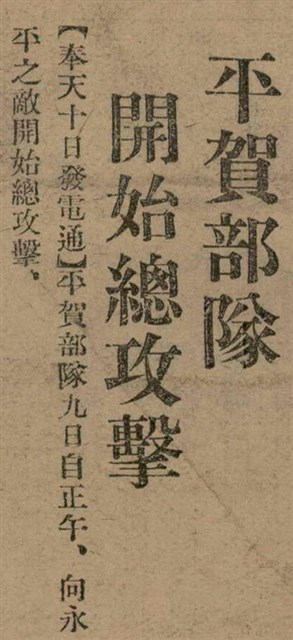 平賀部隊
開始總攻擊
【奉天十日發電通】平賀部隊九日自正午、向永
平之敵開始總攻擊、